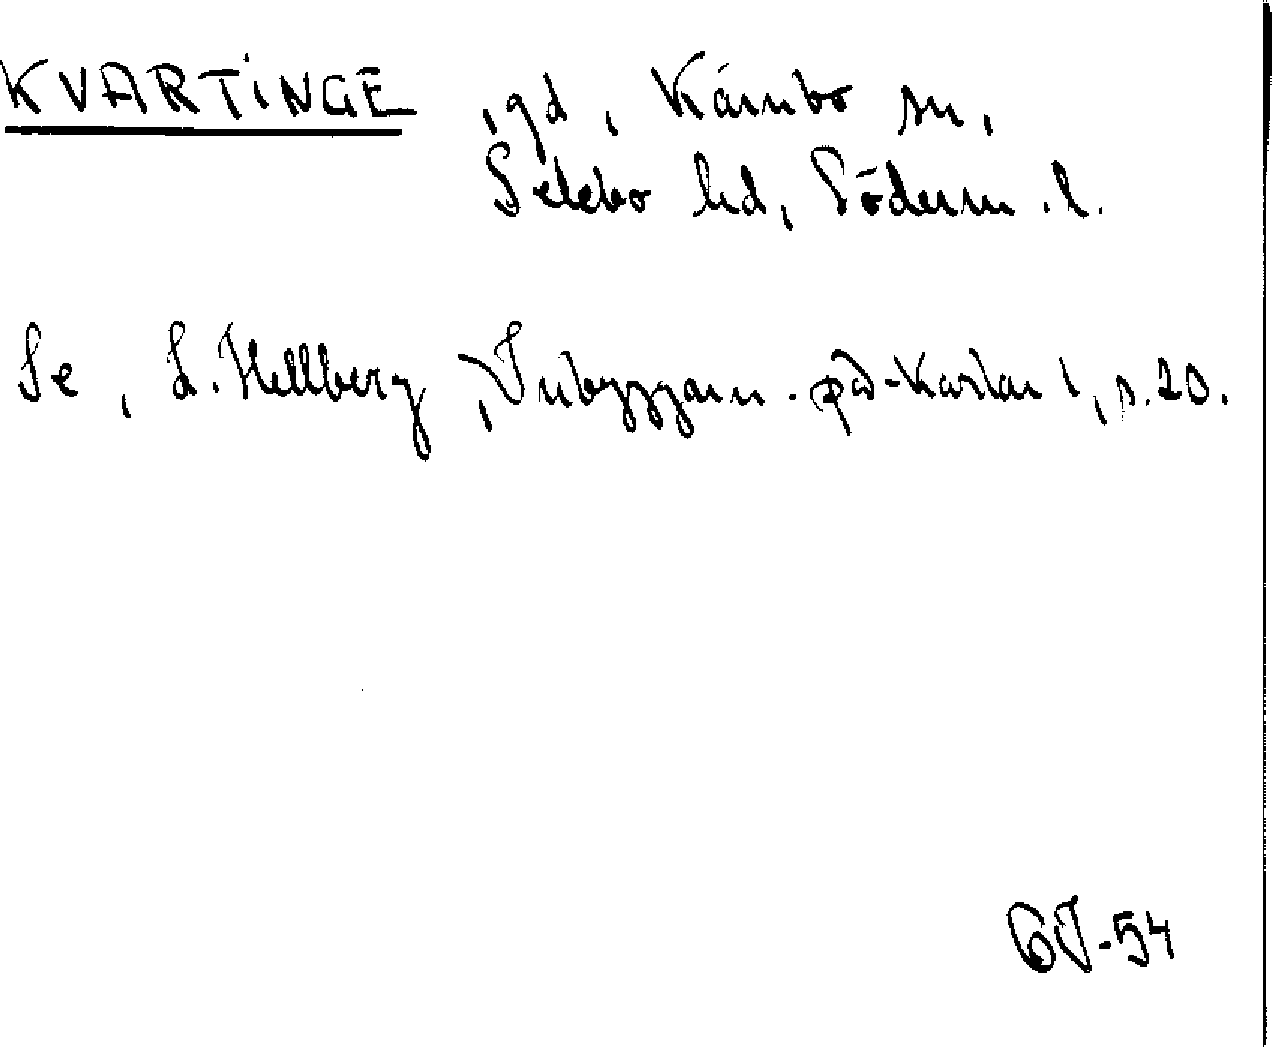 KVARTINGE , gd , Kärnbo sn,
Selebo hd, Söderm. l.
Se , L. Hellberg , Inbyggarn. på -karlar 1, s. 20.
GJ-54